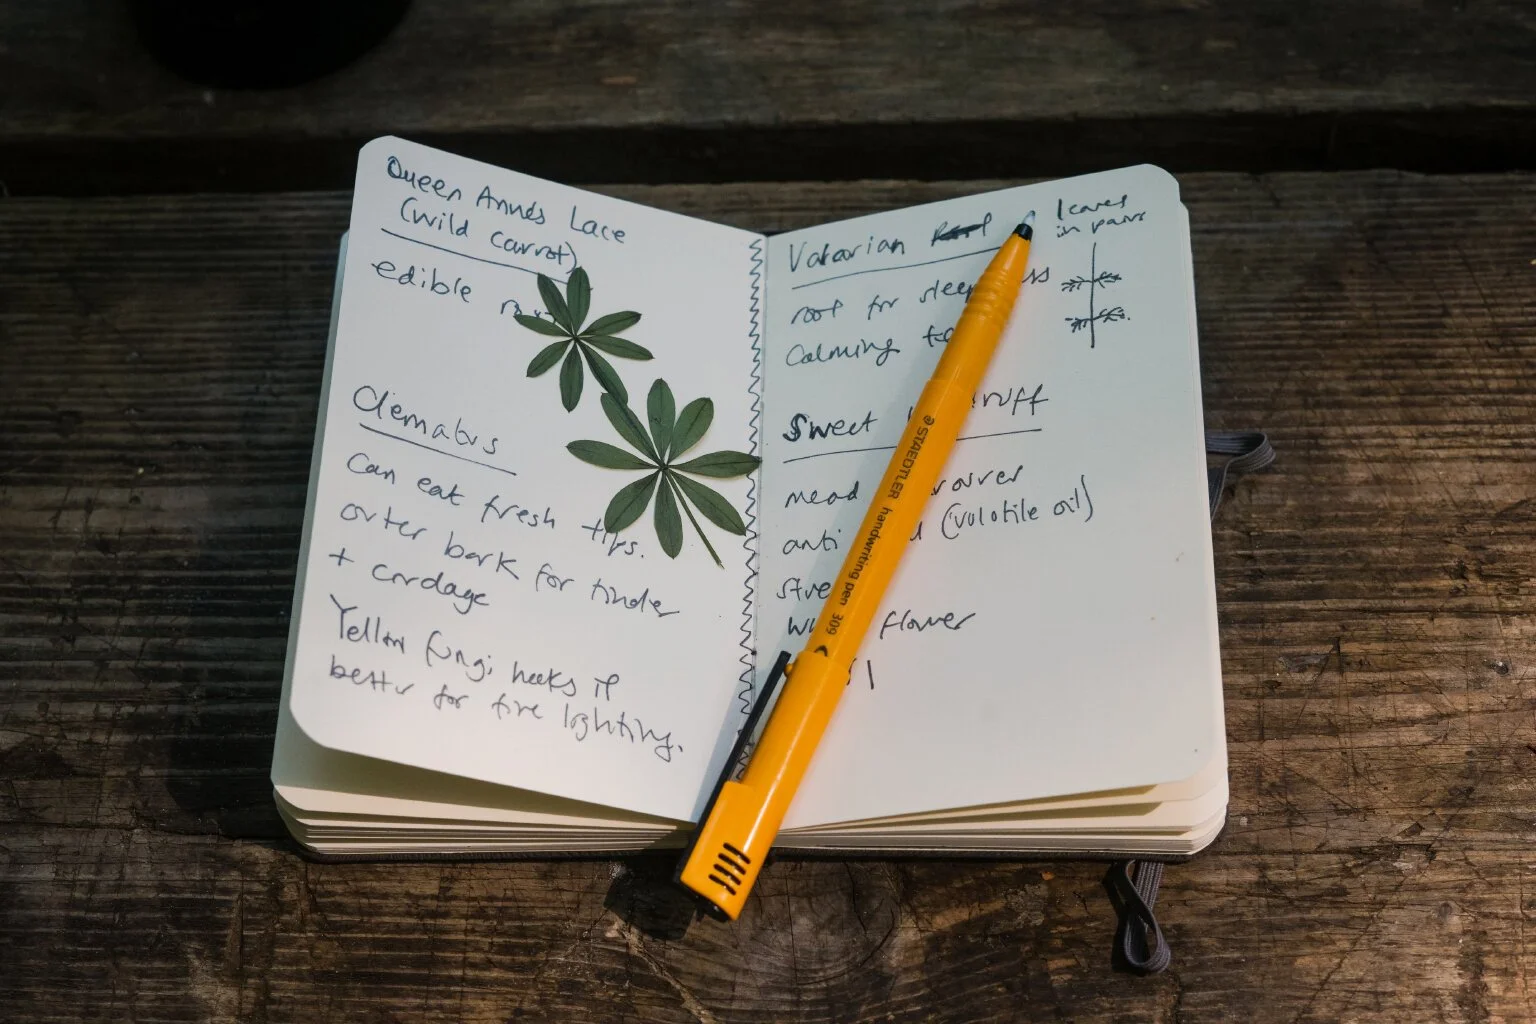 Queen Annes Lace
(wild carrot)
edible
Clematus
Can eat fresh tips.
outer bark for tinder
+ cordage
Yellow fungi hooks if
better for fire lighting.
Valarian
leaves
in pairs
root for
Calming
Sweet
(volotile oil)
anti
flower
STAEDTLER handwriting pen 309